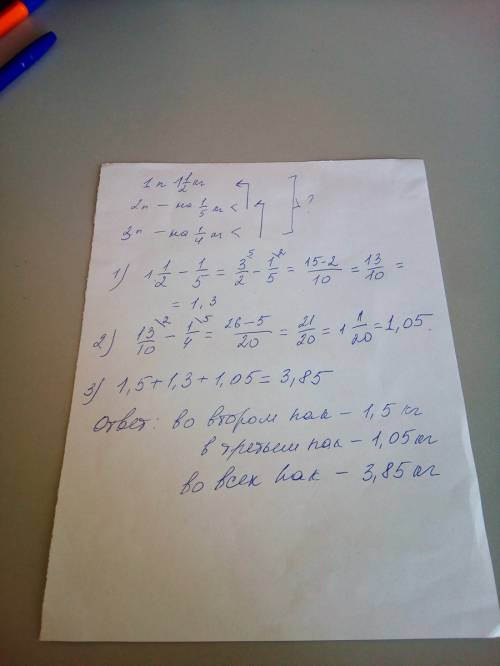 1п 1 1/2 кг
2п – на 1/5 кг <
3п – на 1/4 кг < ?
1) 1 1/2 - 1/5 = 3/2 - 1/5 = 15-2/10 = 13/10 =
= 1,3
2) 13/10 - 1/4 = 26-5/20 = 21/20 = 1 1/20 = 1,05.
3) 1,5+1,3+1,05=3,85
Ответ: во втором пак – 1,5 кг
в третьем пак – 1,05 кг
во всех пак – 3,85 кг